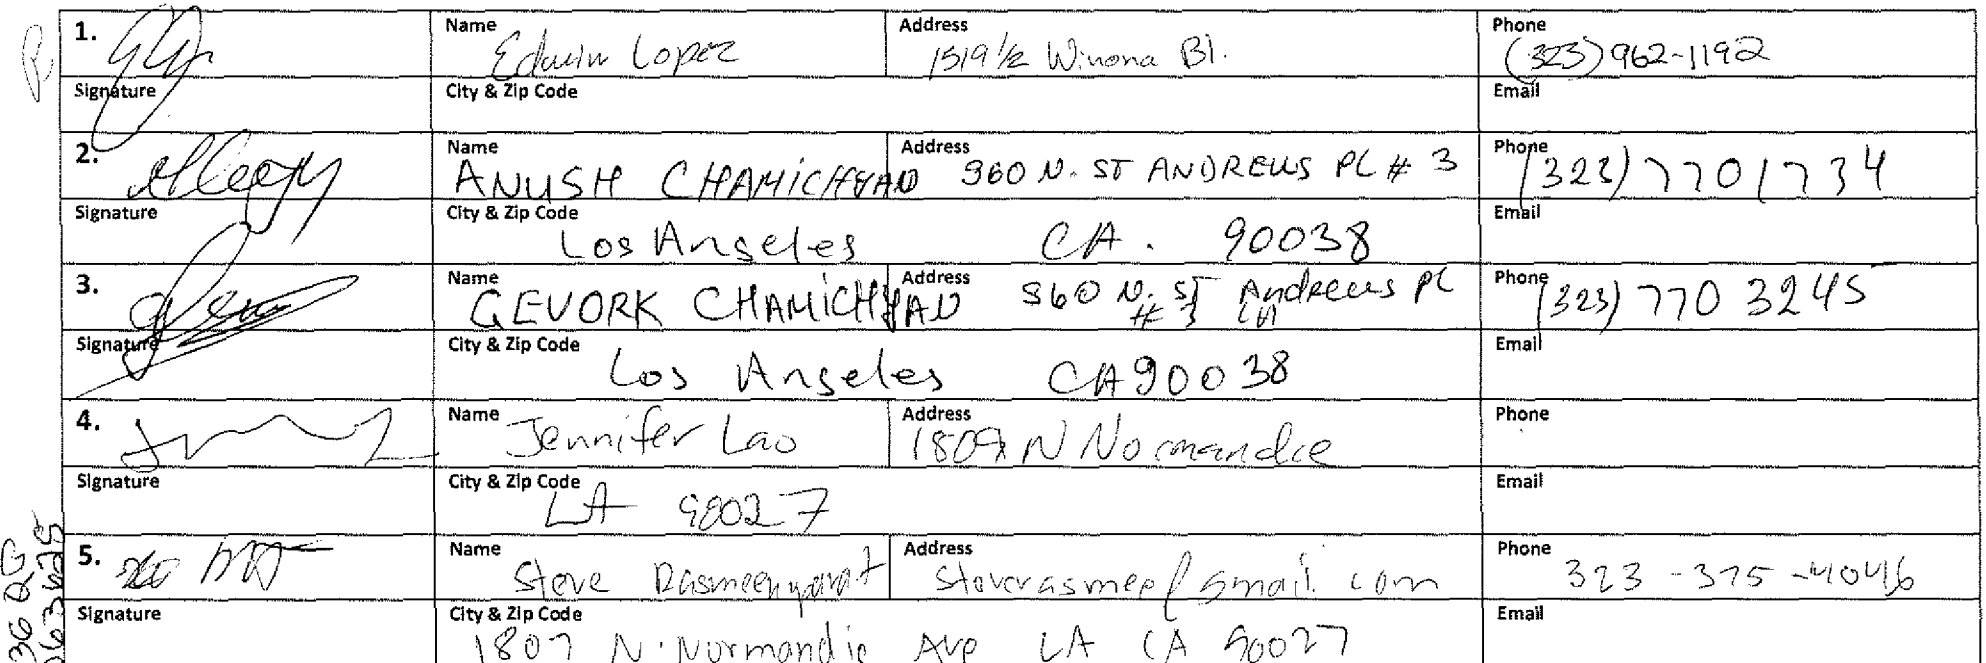 1. Name Edwin Lopez Address 1519 1/2 Winona Bl. Phone (323) 962-1192
Signature City & Zip Code Email
2. Name ANUSH CHAMICHYAN Address 960 N. ST ANDREWS PL # 3 Phone (323) 7701734
Signature City & Zip Code Los Angeles CA. 90038 Email
3. Name GEVORK CHAMICHYAN Address 960 N. ST Andrews PL Phone (323) 770 3245
# 3
Signature City & Zip Code Los Angeles CA 90038 Email
4. Name Jennifer Lao Address N Normandie Phone
Signature City & Zip Code LA 90027 Email
5. Name Steve Address Phone 323-375-4046
Signature City & Zip Code 1807 N. Normandie Ave LA CA 90027 Email